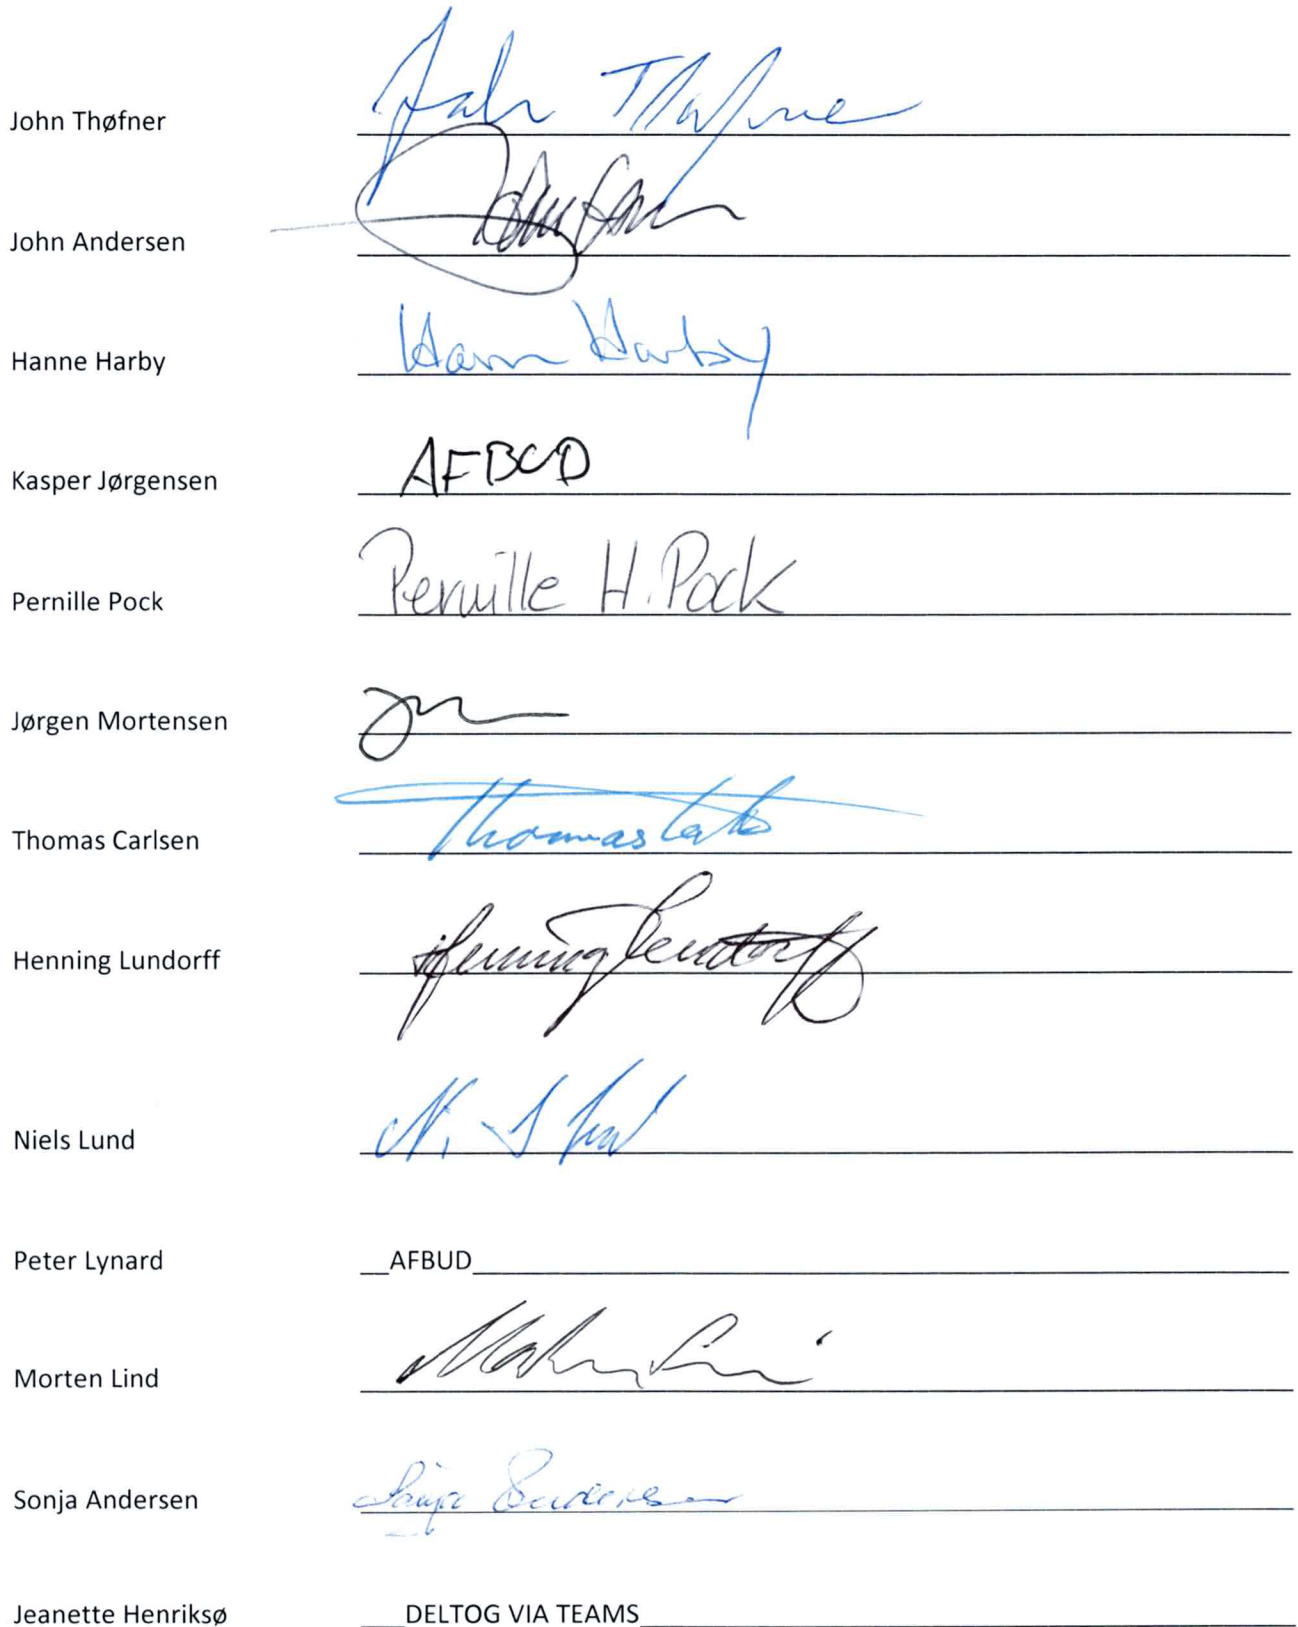 John Thøfner John Thøfner
John Andersen
Hanne Harby Hanne Harby
Kasper Jørgensen AFBUD
Pernille Pock Pernille H. Pock
Jørgen Mortensen
Thomas Carlsen Thomas
Henning Lundorff Henning Lundorff
Niels Lund N.
Peter Lynard __AFBUD
Morten Lind
Sonja Andersen Sonja Andersen
Jeanette Henriksø ___DELTOG VIA TEAMS